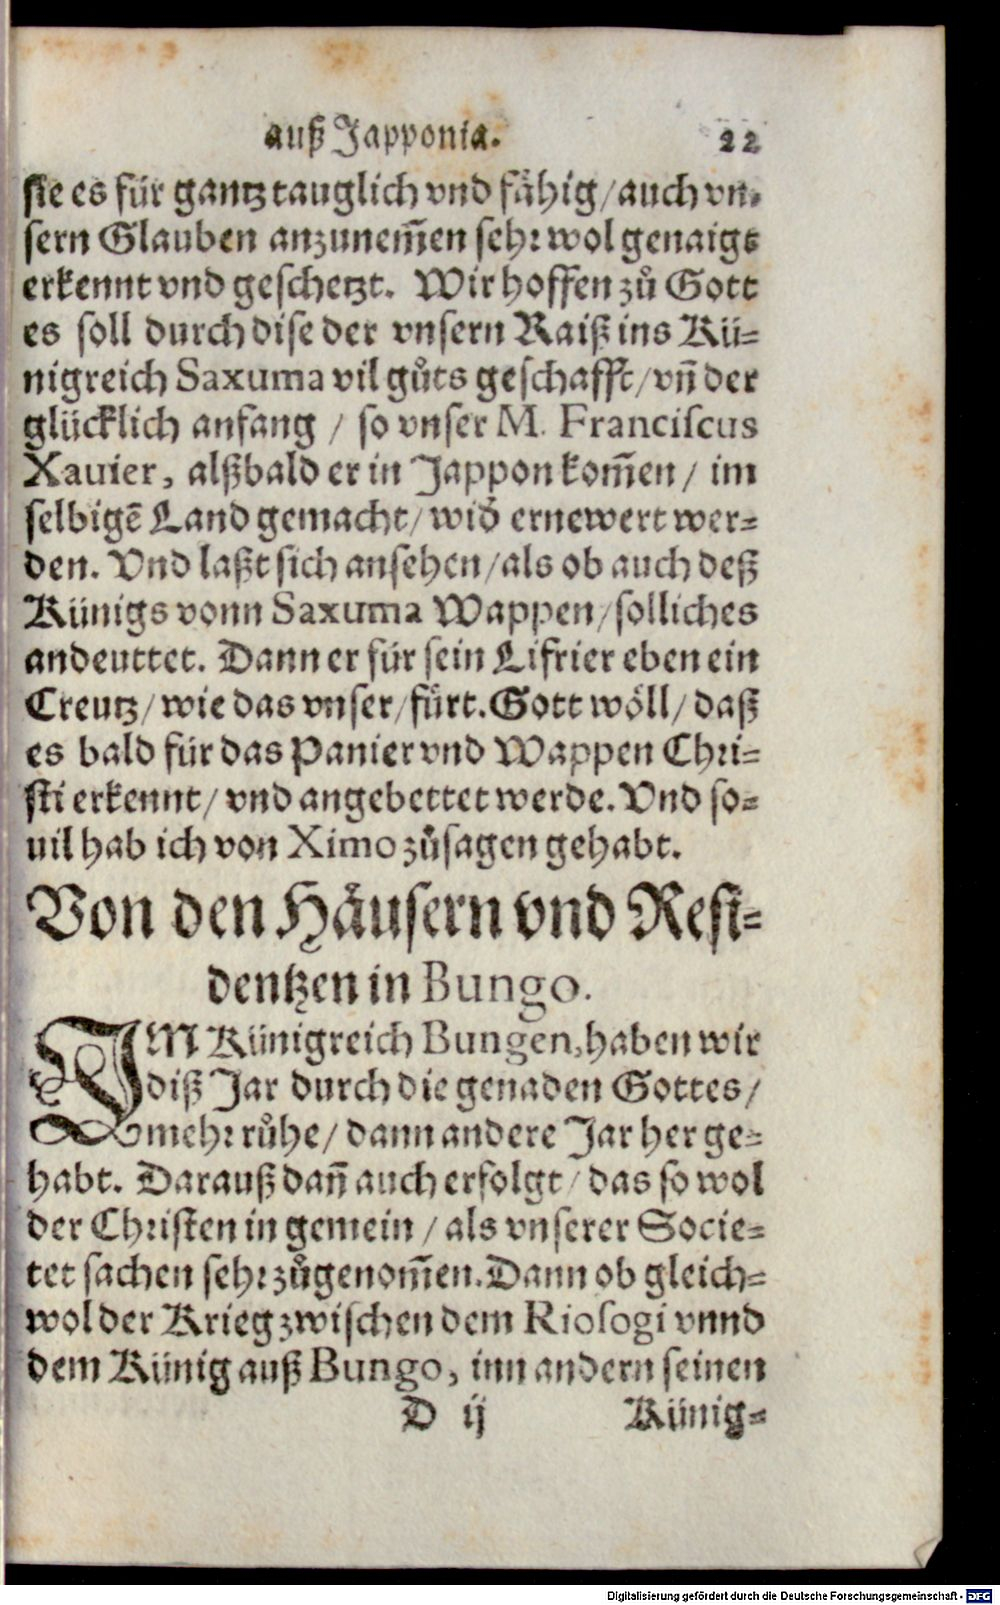 auß Japponia. 22
sie es für gantz tauglich vnd fähig/auch vn-
sern Glauben anzunem̃en sehr wol genaigt
erkennt vnd geschetzt. Wir hoffen zů Gott
es soll durch dise der vnsern Raiß ins Kü-
nigreich Saxuma vil gůts geschafft/vñ der
glücklich anfang / so vnser M. Franciscus
Xauier, alßbald er in Jappon kom̃en / im
selbigẽ Land gemacht/wid̕ ernewert wer-
den. Vnd laßt sich ansehen/als ob auch deß
Künigs vonn Saxuma Wappen/solliches
andeuttet. Dann er für sein Lifrier eben ein
Creutz/wie das vnser/fürt. Gott wöll/daß
es bald für das Panier vnd Wappen Chri-
sti erkennt/vnd angebettet werde. Vnd so-
uil hab ich von Ximo zůsagen gehabt.
Von den Häusern vnd Resi-
dentzen in Bungo.
IM Künigreich Bungen, haben wir
diß Jar durch die genaden Gottes/
mehr růhe/ dann andere Jar her ge-
habt. Darauß dañ auch erfolgt/das so wol
der Christen in gemein / als vnserer Socie-
tet sachen sehr zůgenom̃en. Dann ob gleich-
wol der Krieg zwischen dem Riosogi vnnd
dem Künig auß Bungo, inn andern seinen
D ij Künig-
Digitalisierung gefördert durch die Deutsche Forschungsgemeinschaft - DFG